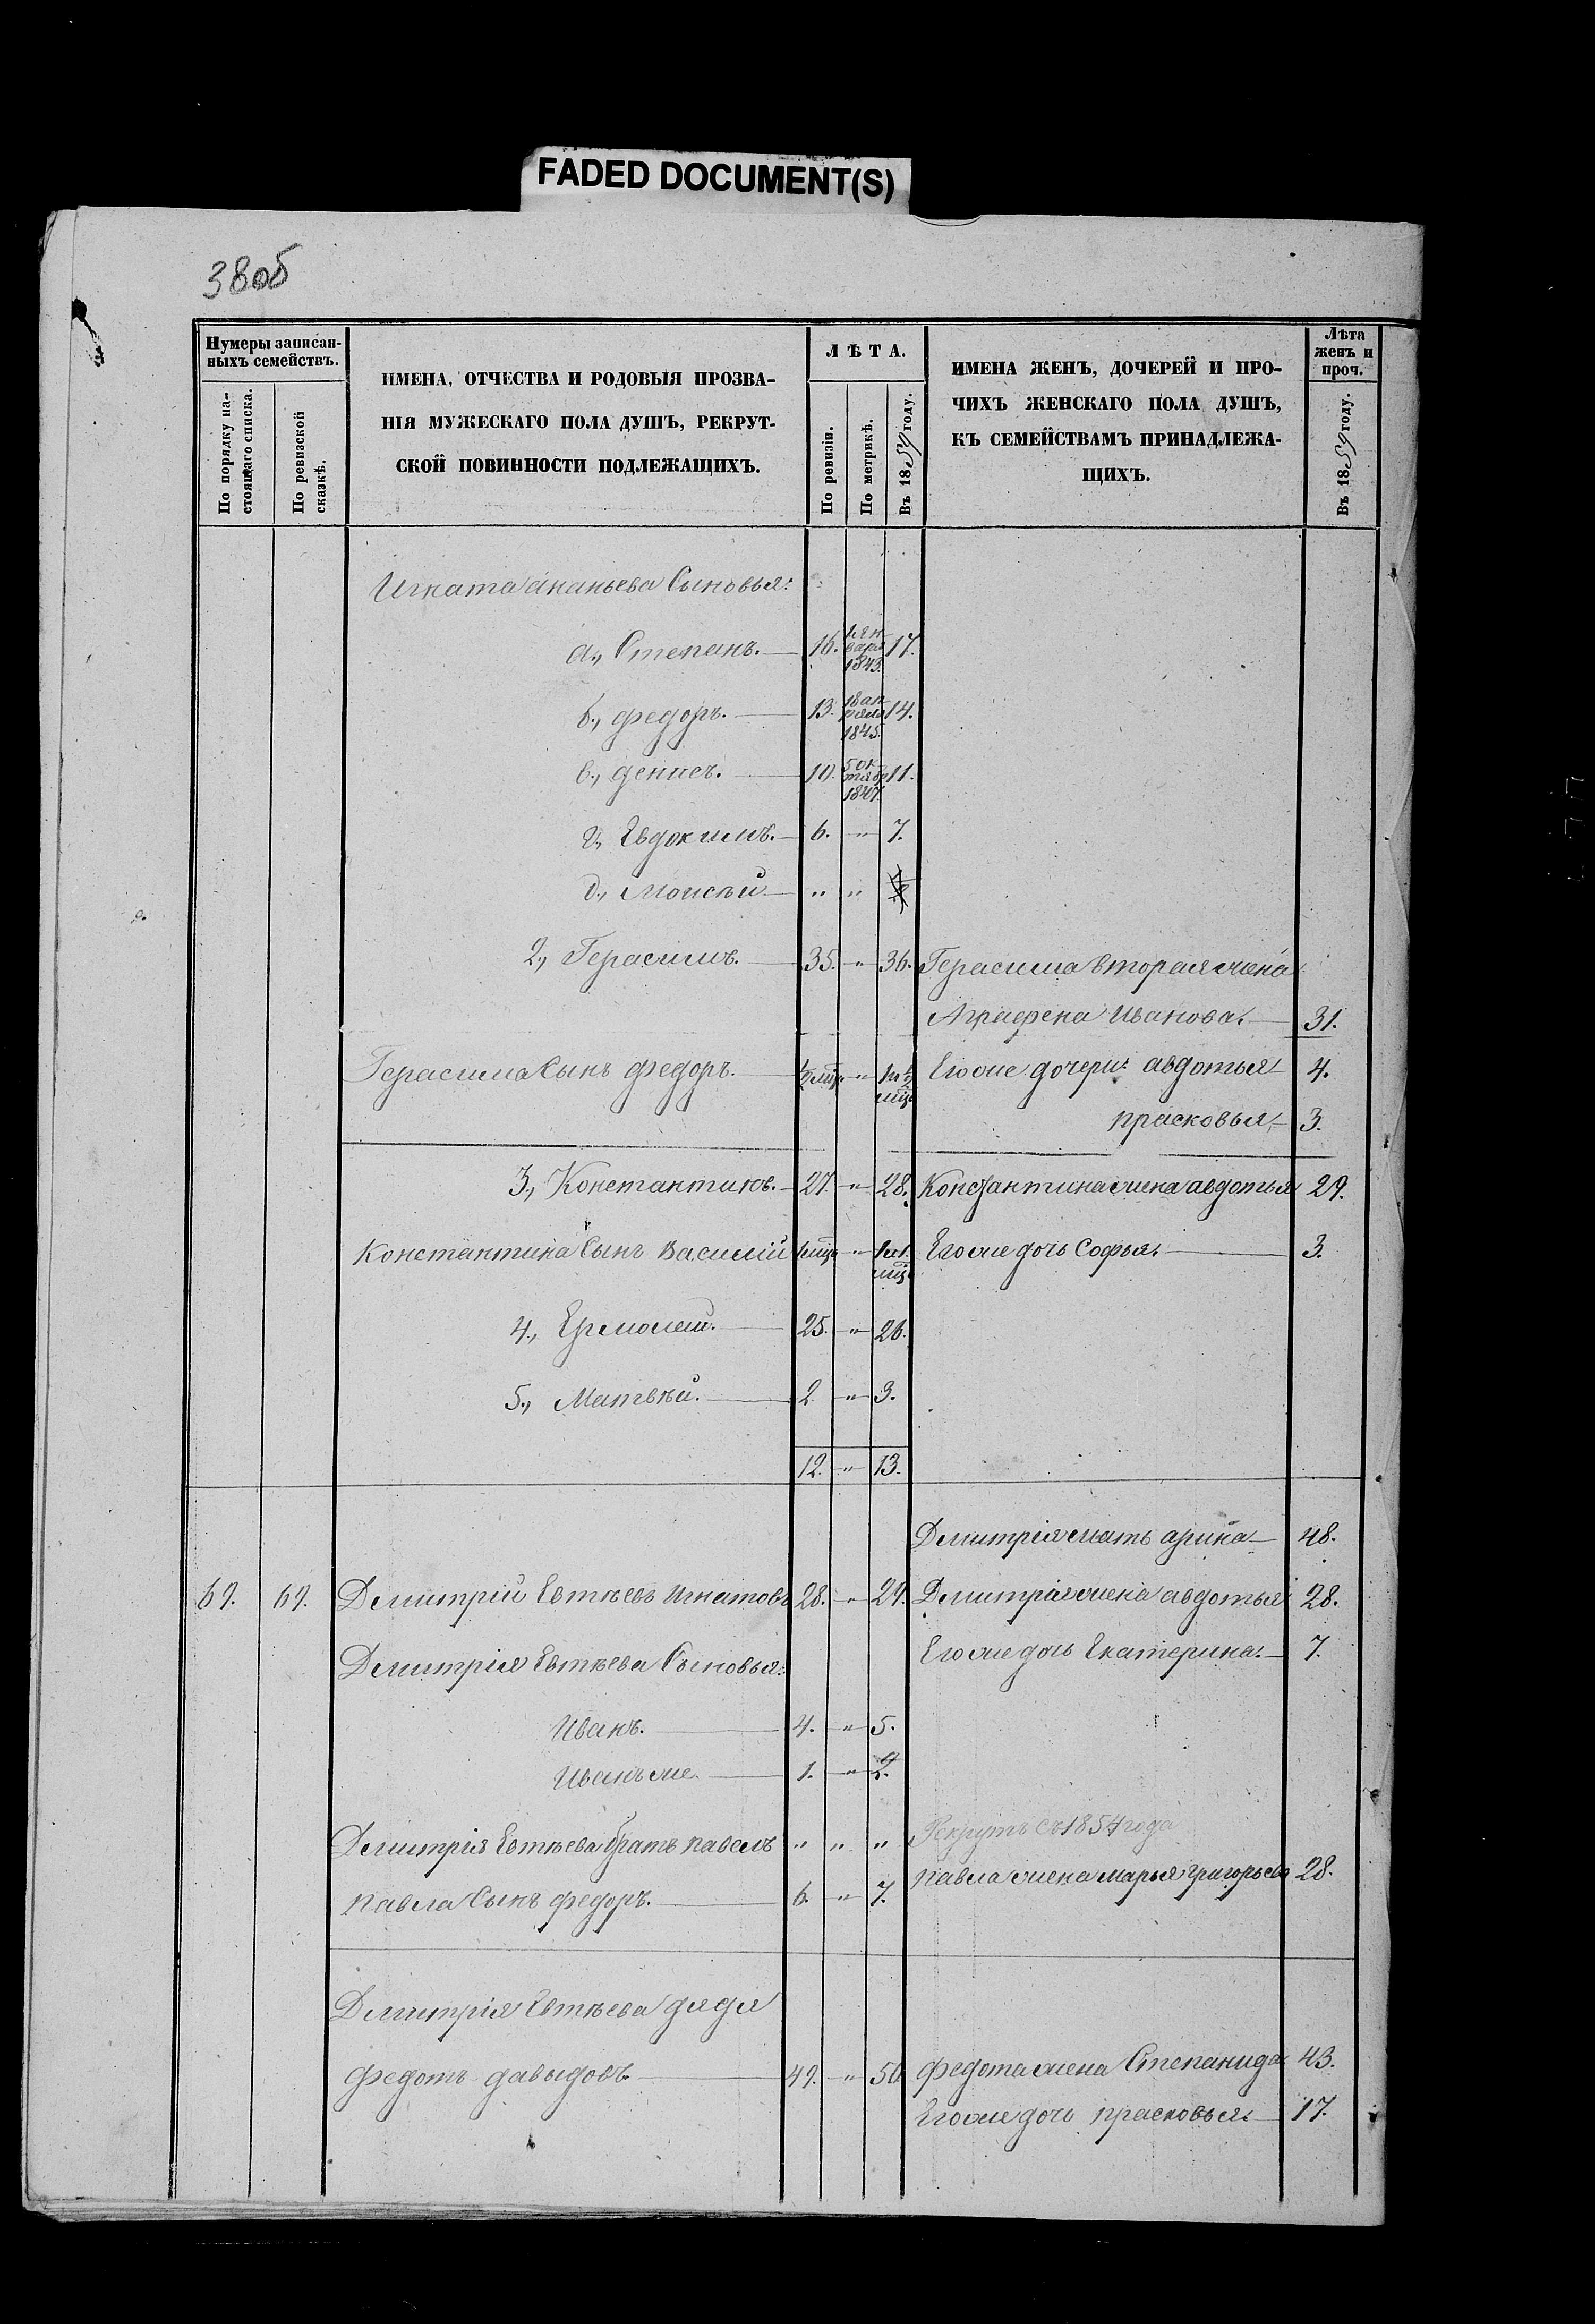 FADED DOCUMENT(S)
38об
Нумеры записан-
ныхъ семействъ.
По порядку на-
стоящаго списка.
По ревизской
сказкѣ.
ИМЕНА, ОТЧЕСТВА И РОДОВЫЯ ПРОЗВА-
НІЯ МУЖЕСКАГО ПОЛА ДУШЪ, РЕКРУТ-
СКОЙ ПОВИННОСТИ ПОДЛЕЖАЩИХЪ.
ЛѢТА.
По ревизіи.
По метрикѣ.
Въ 1859 году.
ИМЕНА ЖЕНЪ, ДОЧЕРЕЙ И ПРО-
ЧИХЪ ЖЕНСКАГО ПОЛА ДУШЪ,
КЪ СЕМЕЙСТВАМЪ ПРИНАДЛЕЖА-
ЩИХЪ.
Лѣта
женъ и
проч.
Въ 1859 году.
Игната ананьева Сыновья:
а., Степанъ. 16. 1 ян варя 1843. 17.
б., федоръ. 13. 18 ап реля 1845. 14.
в., денисъ. 10. 5 ок тябр 1847. 11.
г., Евдокимъ. 6. " 7.
д., Моисѣй " "
2., Герасимъ. 35. " 36. Герасима вторая жена
Аграфена Иванова. 31.
Герасима Сынъ федоръ. ½ мц. " 1 и ½ мц. Его же дочери: авдотья 4.
прасковья. 3.
3., Константинъ. 27. " 28. Константина жена авдотья 29.
Константина Сынъ Василій 1 мц. " 1 и 1. мц. Его же дочь Софья. 3.
4., Ермолай. 25. " 26.
5., Матвѣй. 2 " 3.
12. " 13.
Дмитрія мать арина 48.
69. 69. Дмитрій Евтѣевъ Игнатовъ 28. " 29. Дмитрія жена авдотья 28.
Его же дочь Екатерина. 7.
Дмитрія Евтѣева Сыновья:
Иванъ. 4. " 5.
Иванъ же 1. " 2.
Рекрутъ съ 1854 года
Дмитрія Евтѣева братъ павелъ " " "
павла жена марья григорьева 28.
павла Сынъ федоръ. 6. " 7.
Дмитрія Евтѣева дядя
федотъ давыдовъ. 49. " 50 федота жена Степанида 43.
Его же дочь прасковья. 17.